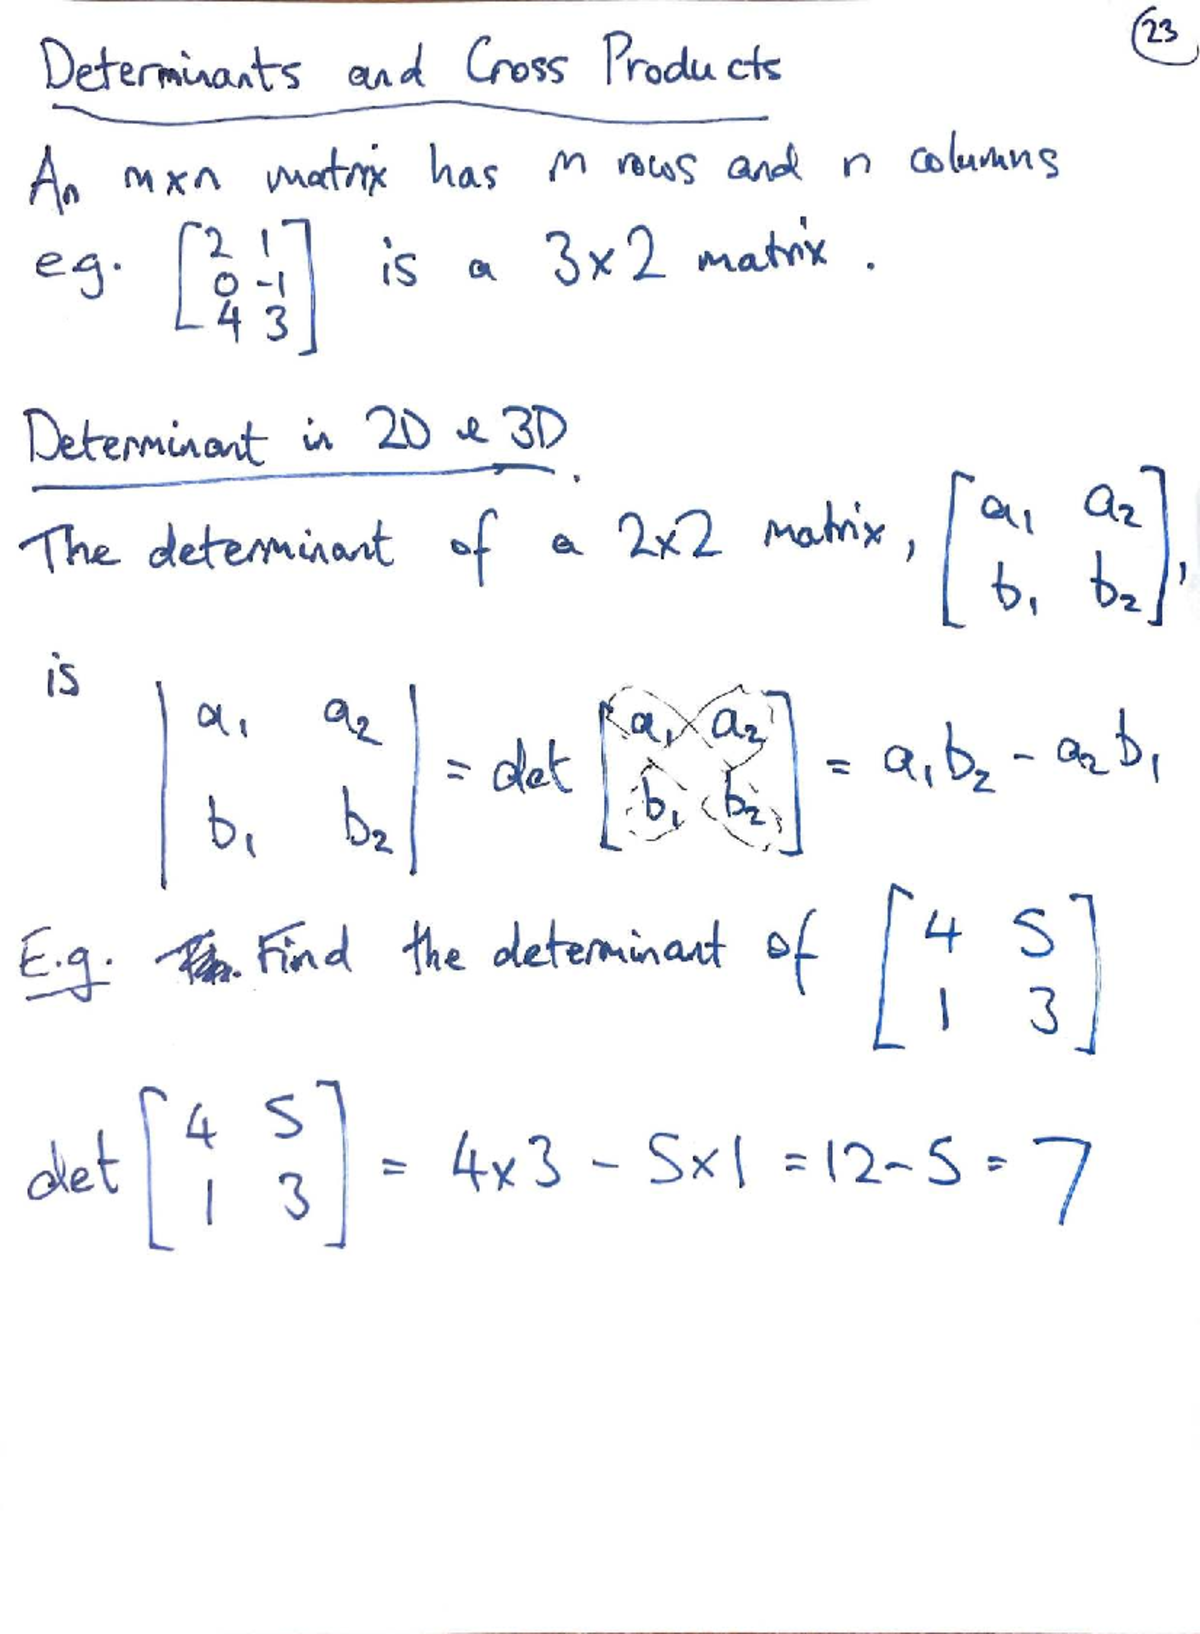 23
Determinants and Cross Products
An m×n matrix has m rows and n columns
e.g. [2 1
0 -1
4 3] is a 3×2 matrix.
Determinant in 2D & 3D.
The determinant of a 2×2 matrix, [a₁ a₂
b₁ b₂],
is
|a₁ a₂
b₁ b₂| = det [a₁ a₂
b₁ b₂] = a₁b₂ - a₂b₁
E.g. Find the determinant of [4 5
1 3]
det [4 5
1 3] = 4×3 - 5×1 = 12-5 = 7